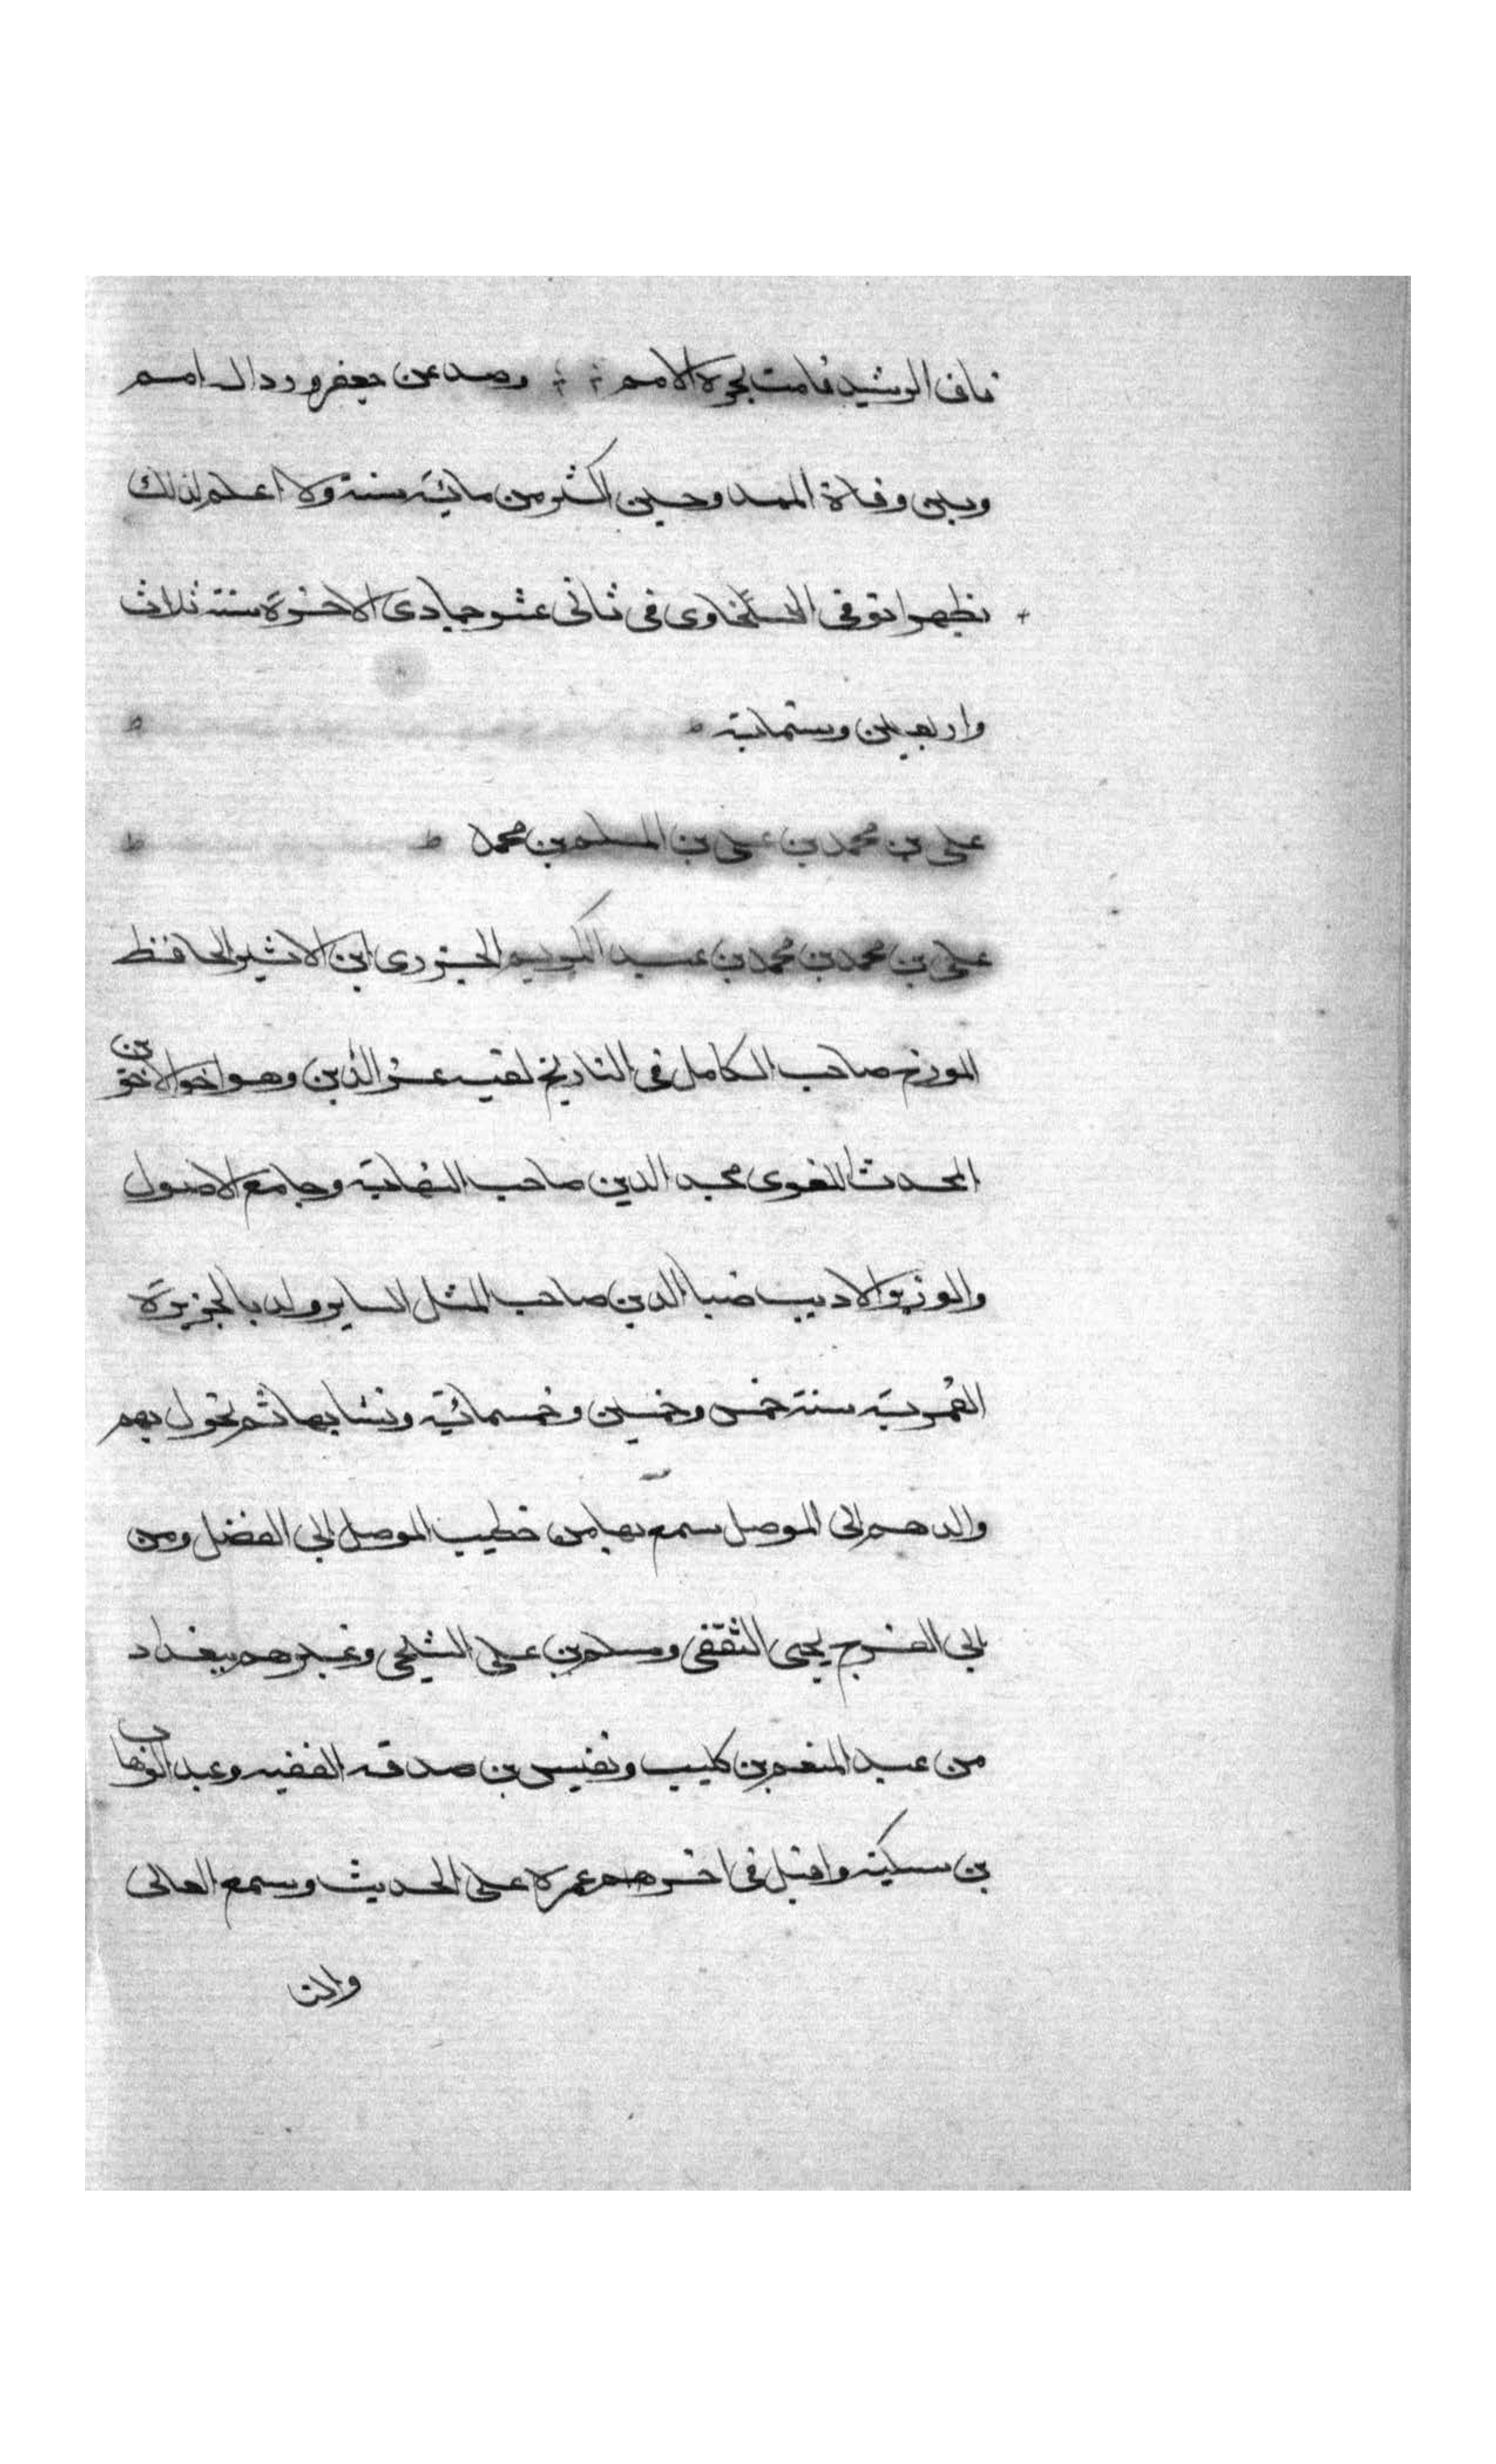 فاق الرشيد فامت بحره الامم ∴ ∴ وصد عن جعفر وردال امم
وبين وفاة الممدوحين اكثر من مائية سنة ولا اعلم لذلك
نظيرا توفى السخاوى فى ثانى عشر جمادى الاخرة سنة ثلاث
واربعين وستماية ه ه
على بن محمد بن على بن المسلم بن محمد ه ه
على بن محمد بن محمد بن عبد الكريم الجزرى ابن الاثير الحافظ
المورخ صاحب الكامل فى التاريخ لقبه عز الدين وهو اخو الاخوين
المحدث اللغوى مجد الدين صاحب النهاية وجامع الاصول
والوزير الاديب ضيا الدين صاحب المثل الساير ولد بالجزيرة
العمرية سنة خمس وخمسين وخمسمائية ونشا بها ثم تحول بهم
والدهم الى الموصل سمع بها من خطيب الموصل ابى الفضل ومن
ابى الفرج يحيى الثقفى ومسلم بن على الشيحى وغيرهم ببغداد
من عبد المنعم بن كليب ونفيس بن صدقه الفقيه وعبد الوهاب
بن سكينه واقبل فى اخر عمره على الحديث وسمع العالى